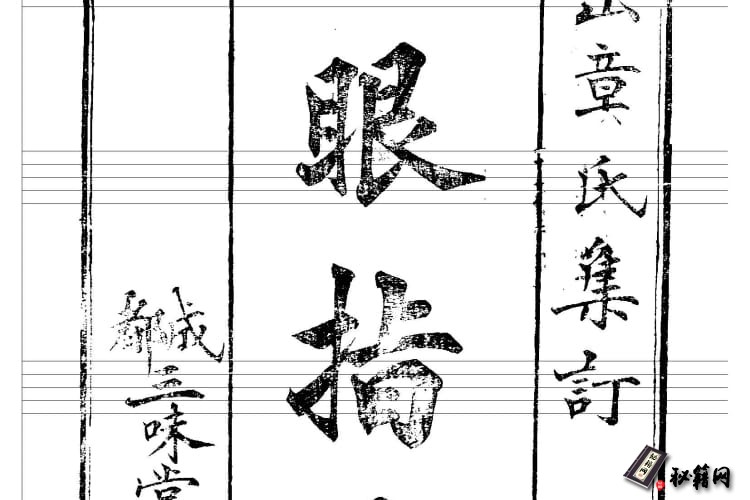 山章氏集訂
眼指
成都三味堂
秘籍网